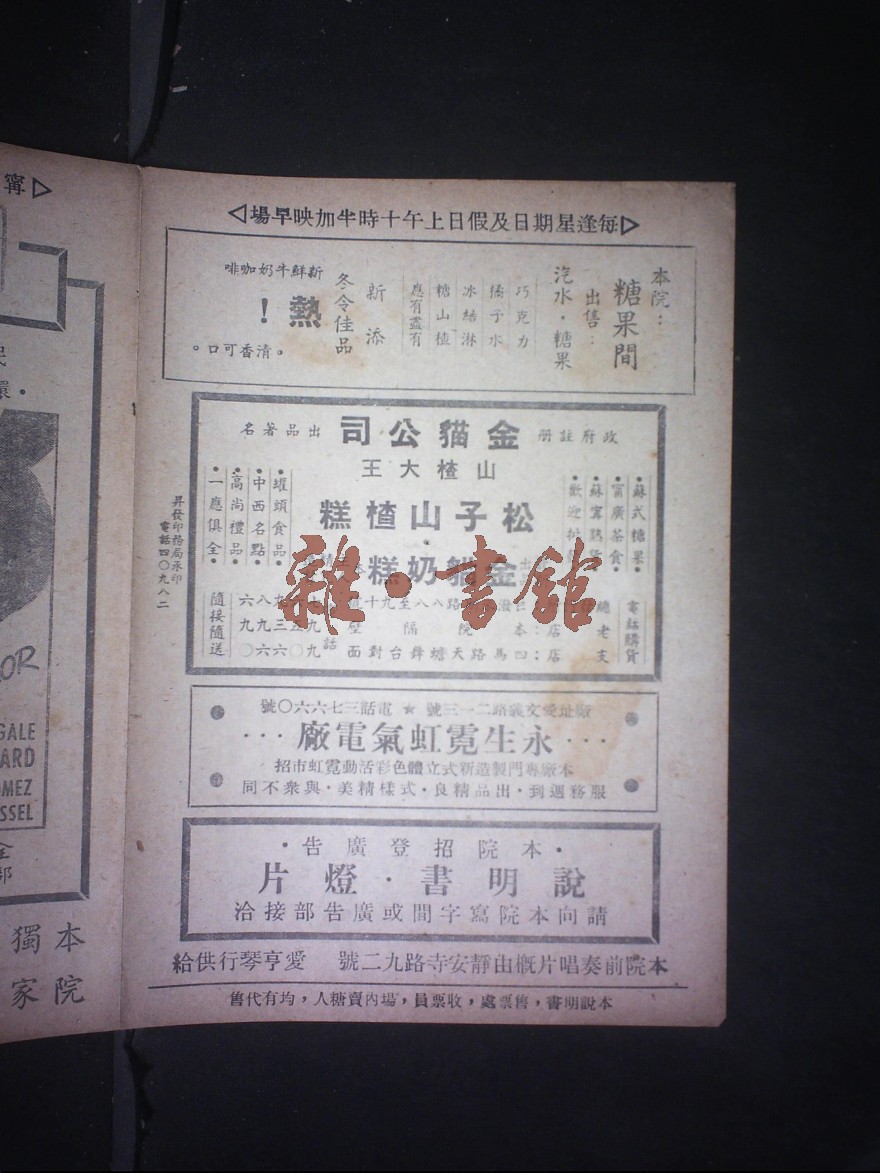 每逢星期日及假日上午十時半加映早場
本院：
糖果間
出售：
汽水·糖果
巧克力
橘子水
冰結淋
糖山楂
應有盡有
新添
冬令佳品
熱！
新鮮牛奶咖啡
清香可口。
政府註册
金貓公司
出品著名
山楂大王
松子山楂糕
金貓奶糕
·蘇式糖果·
·甯廣茶食·
·蘇甯熟貨·
·罐頭食品·
·中西名點·
·高尚禮品·
·一應俱全·
電話購貨
隨接隨送
雜·書館
廠址愛文義路二一三號 ★ 電話三七六六〇號
···永生霓虹氣電廠···
本廠專門製造新式立體色彩活動霓虹市招
服務週到·出品精良·式樣精美·與衆不同
·本院招登廣告·
說明書·燈片
請向本院寫字間或廣告部接洽
本院前奏唱片概由靜安寺路九二號 愛亨琴行供給
本說明書，售票處，收票員，場內賣糖人，均有代售
昇發印務局承印
電話四〇九八二
甯
OR
GALE
ARD
OMEZ
SSEL
本院
獨家